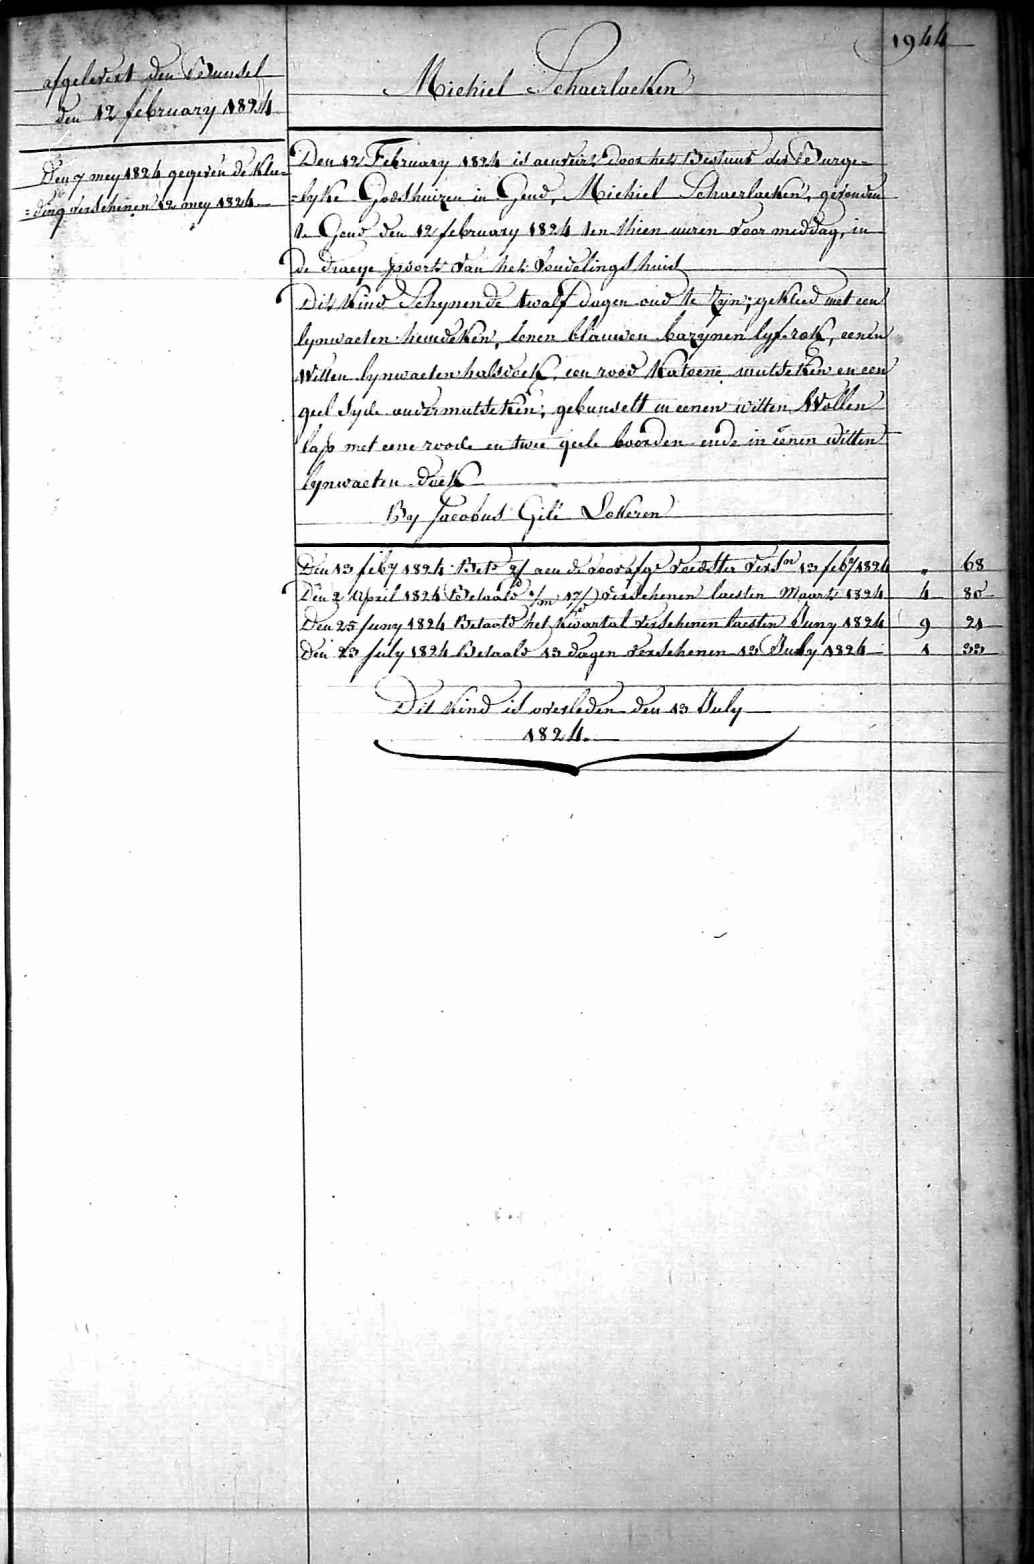 1944
afgelevert den Bunsel
den 12 february 1824
Den 7 mey 1824 gegeven de Klee-
=ding verschenen 12 mey 1824
Michiel Schaerlaeken
Den 12 February 1824 is aenveirt door het Bestuur der Burge-
=lyke Godshuizen in Gend, Michiel Schaerlaeken, gevonden
te Gend den 12 february 1824 ten thien uuren voor middag, in
de draeye poorte van het vondelingshuis
Dit Kind Schynende twalf dagen oud te Zyn; gekleed met een
lynwaeten hemdeken, eenen blauwen bazynen lyf-rok, eenen
Witten lynwaeten halsdoek, een rood Katoene mutseken en een
geel Syde ondermutseken; gebunselt in eenen witten Wollen
lap met eene roode en twee geele boorden ende in eenen witten
lynwaeten doek
By Jacobus Gili Lokeren
Den 13 feby 1824 aen de voedster 13 feby 1824 . 68
Den 2 April 1824 Betaald verschenen laesten Maarte 1824 4 80
Den 25 Juny 1824 Betaald het kwartal verschenen laesten Juny 1824 9 21
Den 23 July 1824 Betaald 13 dagen verschenen 13 July 1824 1 33
Dit Kind is overleden den 13 July
1824.